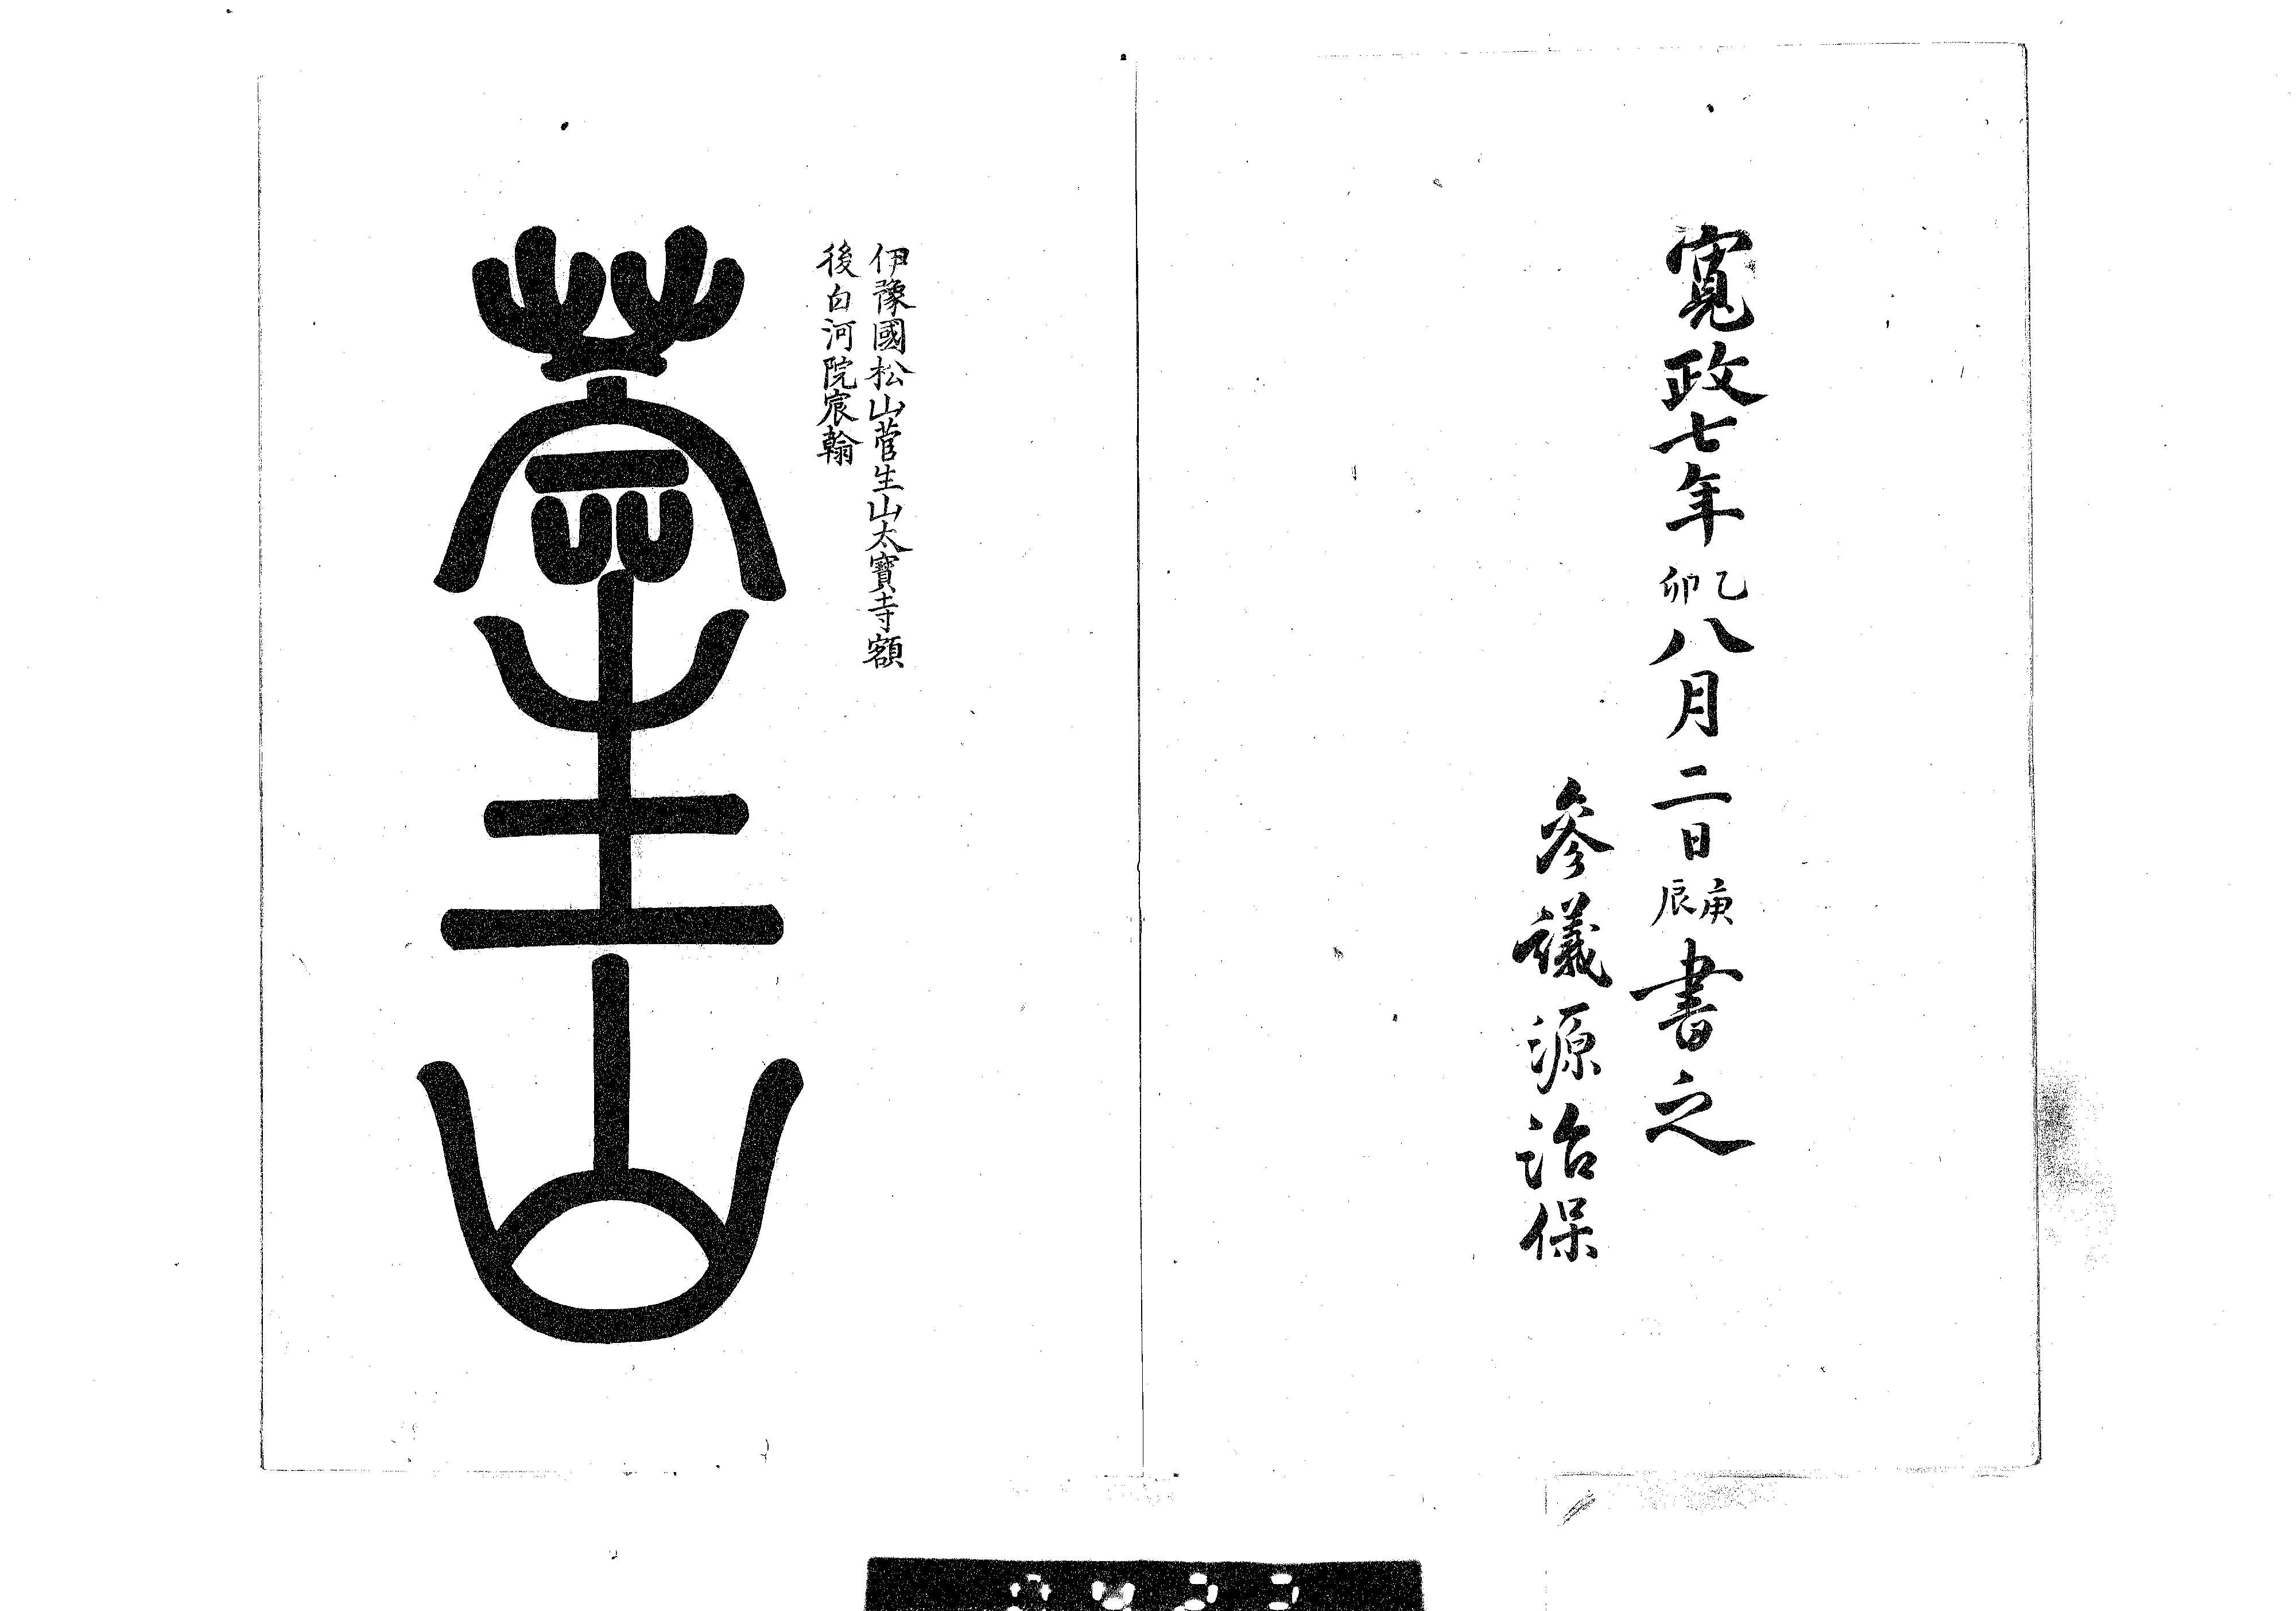 寛政七年乙卯八月二日庚辰書之
參議源治保
伊豫國松山菅生山太寶寺額
後白河院宸翰
菅生山